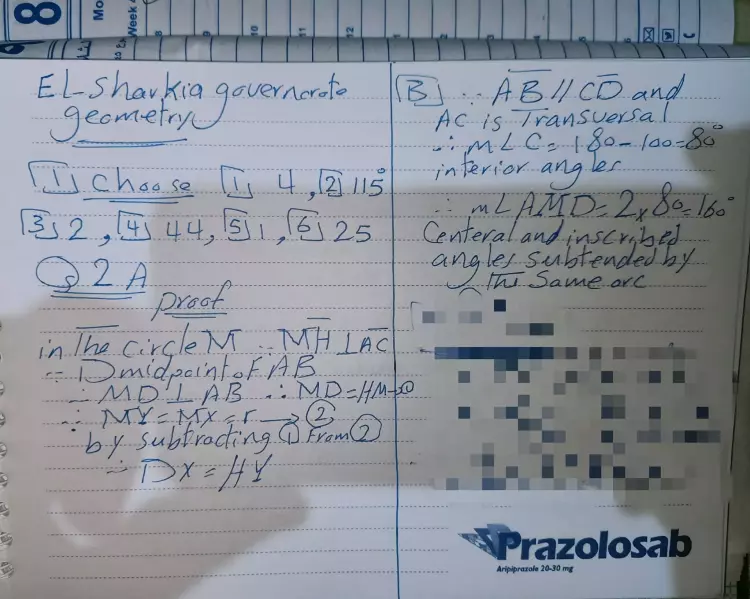 8
Mo
Week 4
EL-Sharkia governorate
geometry
[1] choose [1] 4, [2] 115°
[3] 2, [4] 44, [5] 1, [6] 25
Q 2 A
Proof
in The circle M ∵ MH ⊥ AC
∵ D midpoint of AB
∴ MD ⊥ AB ∴ MD = HM → ①
∵ MY = MX = r → ②
by subtracting ① from ②
∴ DX = HY
[B] ∵ AB // CD and
AC is Transversal
∴ m∠C = 180 - 100 = 80°
interior angles
∴ m∠AMD = 2 x 80 = 160°
Centeral and inscribed
angles subtended by
The Same arc
Prazolosab
Aripiprazole 20-30 mg